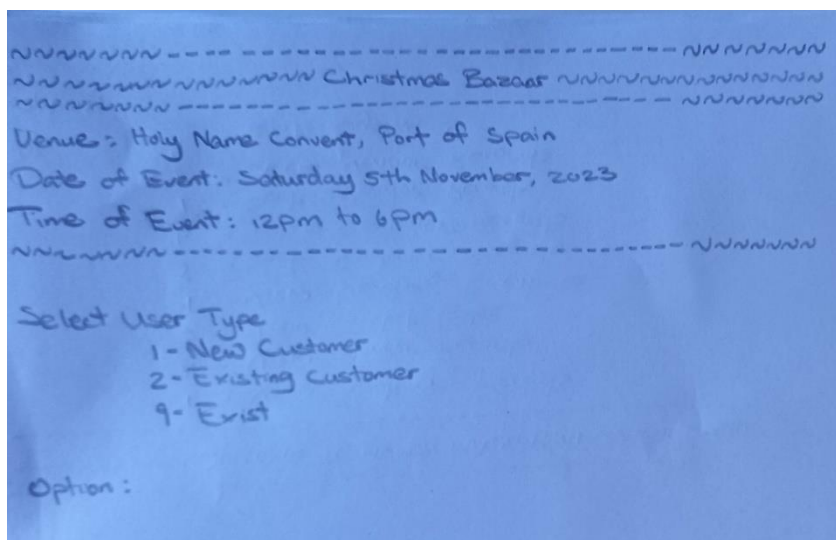 ~~~~~~~-----------------------------------~~~~~~~
~~~~~~~~~~~~~~ Christmas Bazaar ~~~~~~~~~~~~~~
~~~~~~~-----------------------------------~~~~~~~
Venue: Holy Name Convent, Port of Spain
Date of Event: Saturday 5th November, 2023
Time of Event: 12pm to 6pm
~~~~~~~-----------------------------------~~~~~~~
Select User Type
1- New Customer
2- Existing Customer
9- Exist
Option: